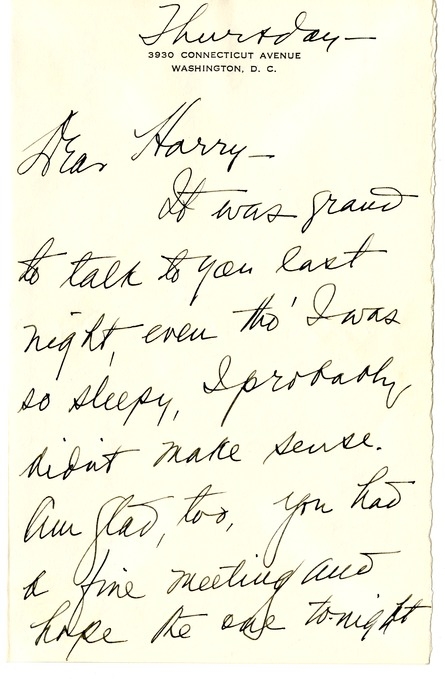 Thursday—
3930 CONNECTICUT AVENUE
WASHINGTON, D. C.
Dear Harry—
It was grand
to talk to you last
night, even tho' I was
so sleepy, I probably
didn't make sense.
Am glad, too, you had
a fine meeting and
hope the one to-night